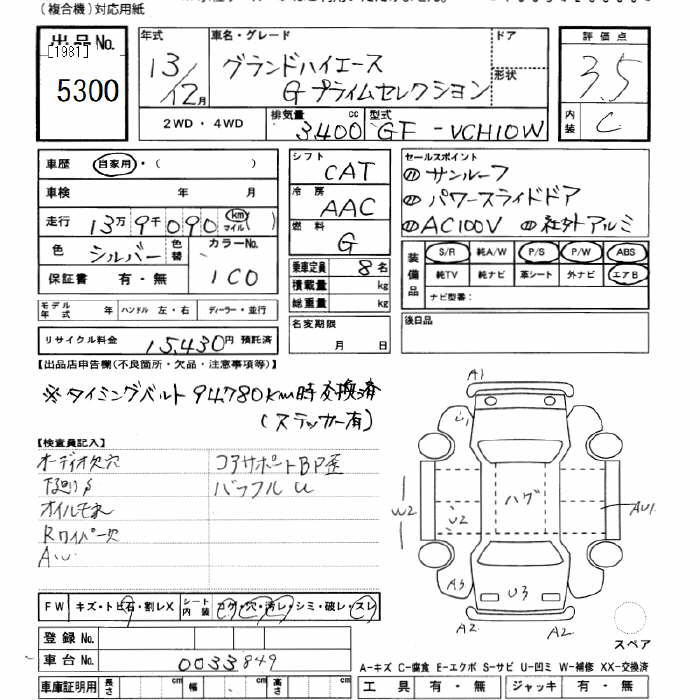 (複合機)対応用紙
出品No.
[1981]
5300
年式
13/12月
車名・グレード
グランドハイエース
Gプライムセレクション
ドア
形状
評価点
3.5
内装
C
2WD・4WD
排気量
3400cc
型式
GF-VCH10W
車歴
自家用・( )
車検 年 月
走行 13万9千090 km マイル( )
色 シルバー 色替
カラーNo.
1C0
保証書 有・無
シフト
CAT
冷房
AAC
燃料
G
乗車定員 8名
積載量 kg
総重量 kg
セールスポイント
サンルーフ
パワースライドドア
AC100V 社外アルミ
装備品
S/R 純A/W P/S P/W ABS
純TV 純ナビ 革シート 外ナビ エアB
ナビ型番:
モデル年式 年 ハンドル 左・右 ディーラー・並行
リサイクル料金 15,430円 預託済
名変期限
月 日
後日品
【出品店申告欄(不良箇所・欠品・注意事項等)】
※タイミングベルト 94780km時交換済
(ステッカー有)
【検査員記入】
オーディオ欠穴 コアサポートBP歪
下廻りS バッフルU
オイルモレ
Rワイパー欠
AW
FW キズ・トビ石・割レX シート内装 コゲ・穴・汚レ・シミ・破レ・スレ
登録No.
車台No. 0033849
車庫証明用 長さ cm 幅 cm 高さ cm
A1
U1
W2
U2
ハゲ
AU1
A3
U3
A2
A2
スペア
A-キズ C-腐食 E-エクボ S-サビ U-凹ミ W-補修 XX-交換済
工具 有・無 ジャッキ 有・無